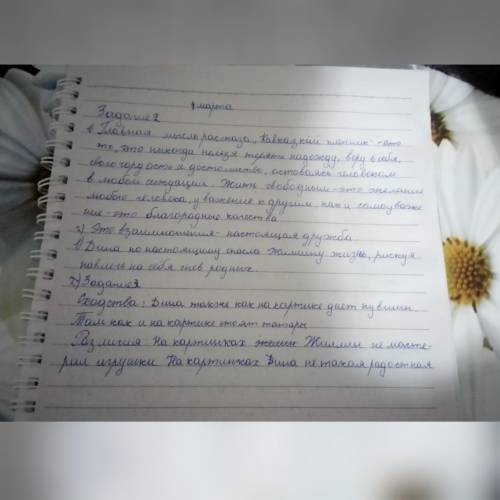 1 марта
Задание 2
1) Главная мысль расказа, Кавказкий пленник - это
то, что никогда нельзя терять надежду, веру в себя,
своего гордость и достоинство, оставаясь человеком
в любой ситуации. Жить свободным - это желание
любого человека, уважение к другим как и самоуваже
ние - это благородные качества.
2) Это взаимопонения - настоящая дружба
1) Дина по настоящиму спасла Жилину жизнь, рискуя
навлечь на себя гнев родных.
2) Задание 3
Сходства: Дина также как на картике дает кувшин.
Там как и на картике стоят татары
Различия на картинках Жилин не масте-
рил игрушки На картинках Дина не такая радостная